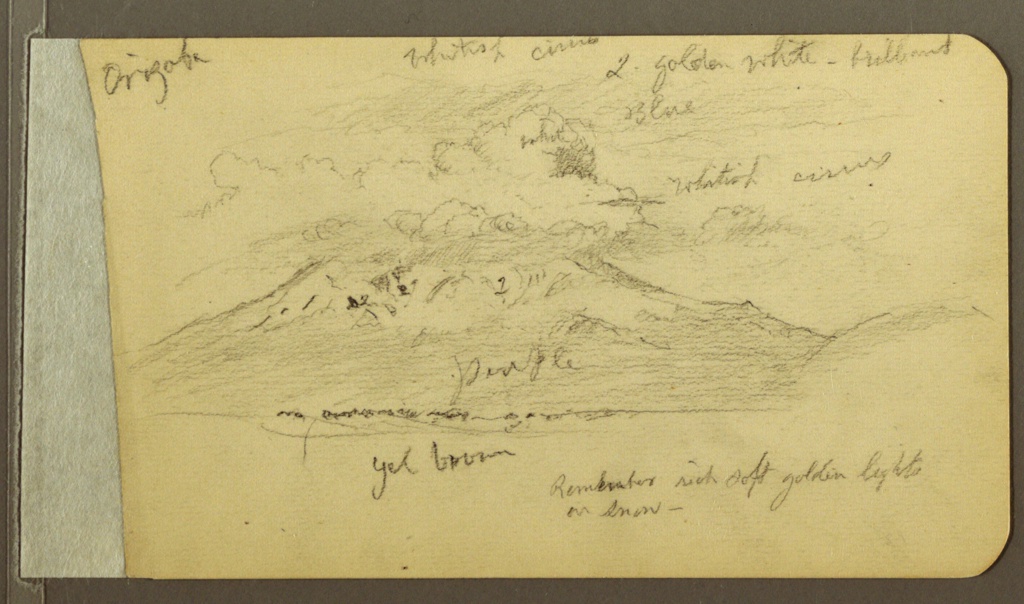 Orizaba
whitish cirrus
2. golden white - brilliant
Blue
white
whitish cirrus
2
2
purple
yel brown
Remember rich soft golden lights
on snow -